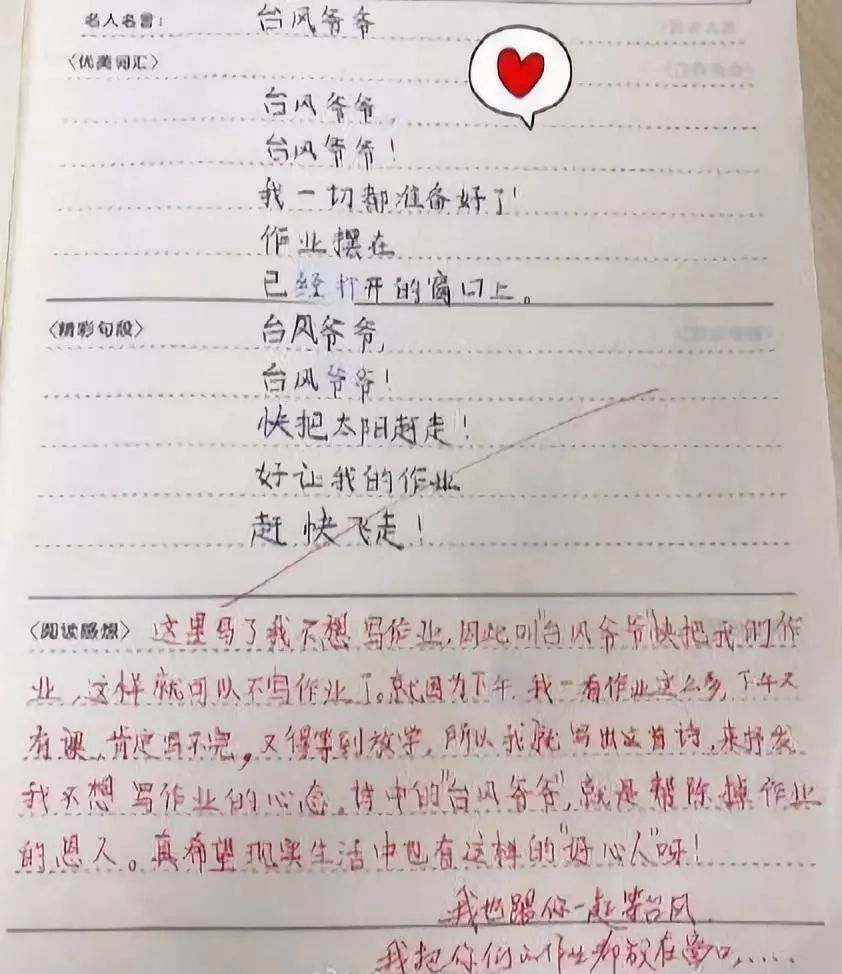 名人名言： 台风爷爷
〈优美词汇〉
台风爷爷，
台风爷爷！
我一切都准备好了！
作业摆在
已经打开的窗口上。
〈精彩句段〉 台风爷爷，
台风爷爷！
快把太阳赶走！
好让我的作业
赶快飞走！
〈阅读感想〉 这里写了我不想写作业，因此叫"台风爷爷"快把我的作
业，这样就可以不写作业了。就因为下午，我一看作业这么多，下午又
有课，肯定写不完，又得等到放学，所以我就写出这首诗，来抒发
我不想写作业的心态，诗中的"台风爷爷"，就是帮除掉作业
的恩人。真希望现实生活中也有这样的"好心人"呀！
我也跟你一起等台风
我把你们的作业都放在窗口……